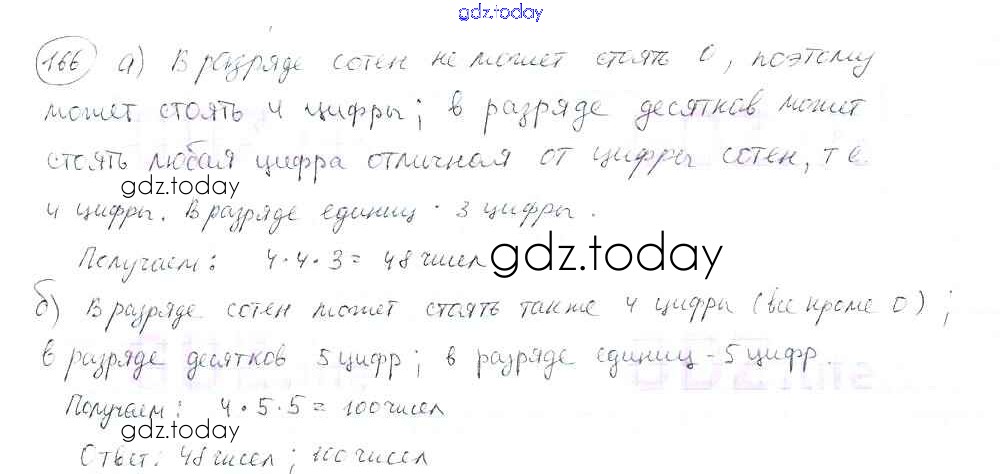 gdz.today
166 а) В разряде сотен не может стоять 0, поэтому
может стоять 4 цифры; в разряде десятков может
стоять любая цифра отличная от цифры сотен, т е.
gdz.today
4 цифры. В разряде единиц · 3 цифры.
Получаем: 4·4·3= 48 чисел gdz.today
б) В разряде сотен может стоять также 4 цифры (все кроме 0);
в разряде десятков 5 цифр; в разряде единиц - 5 цифр.
Получаем: 4·5·5=100 чисел
gdz.today
Ответ: 48 чисел; 100 чисел